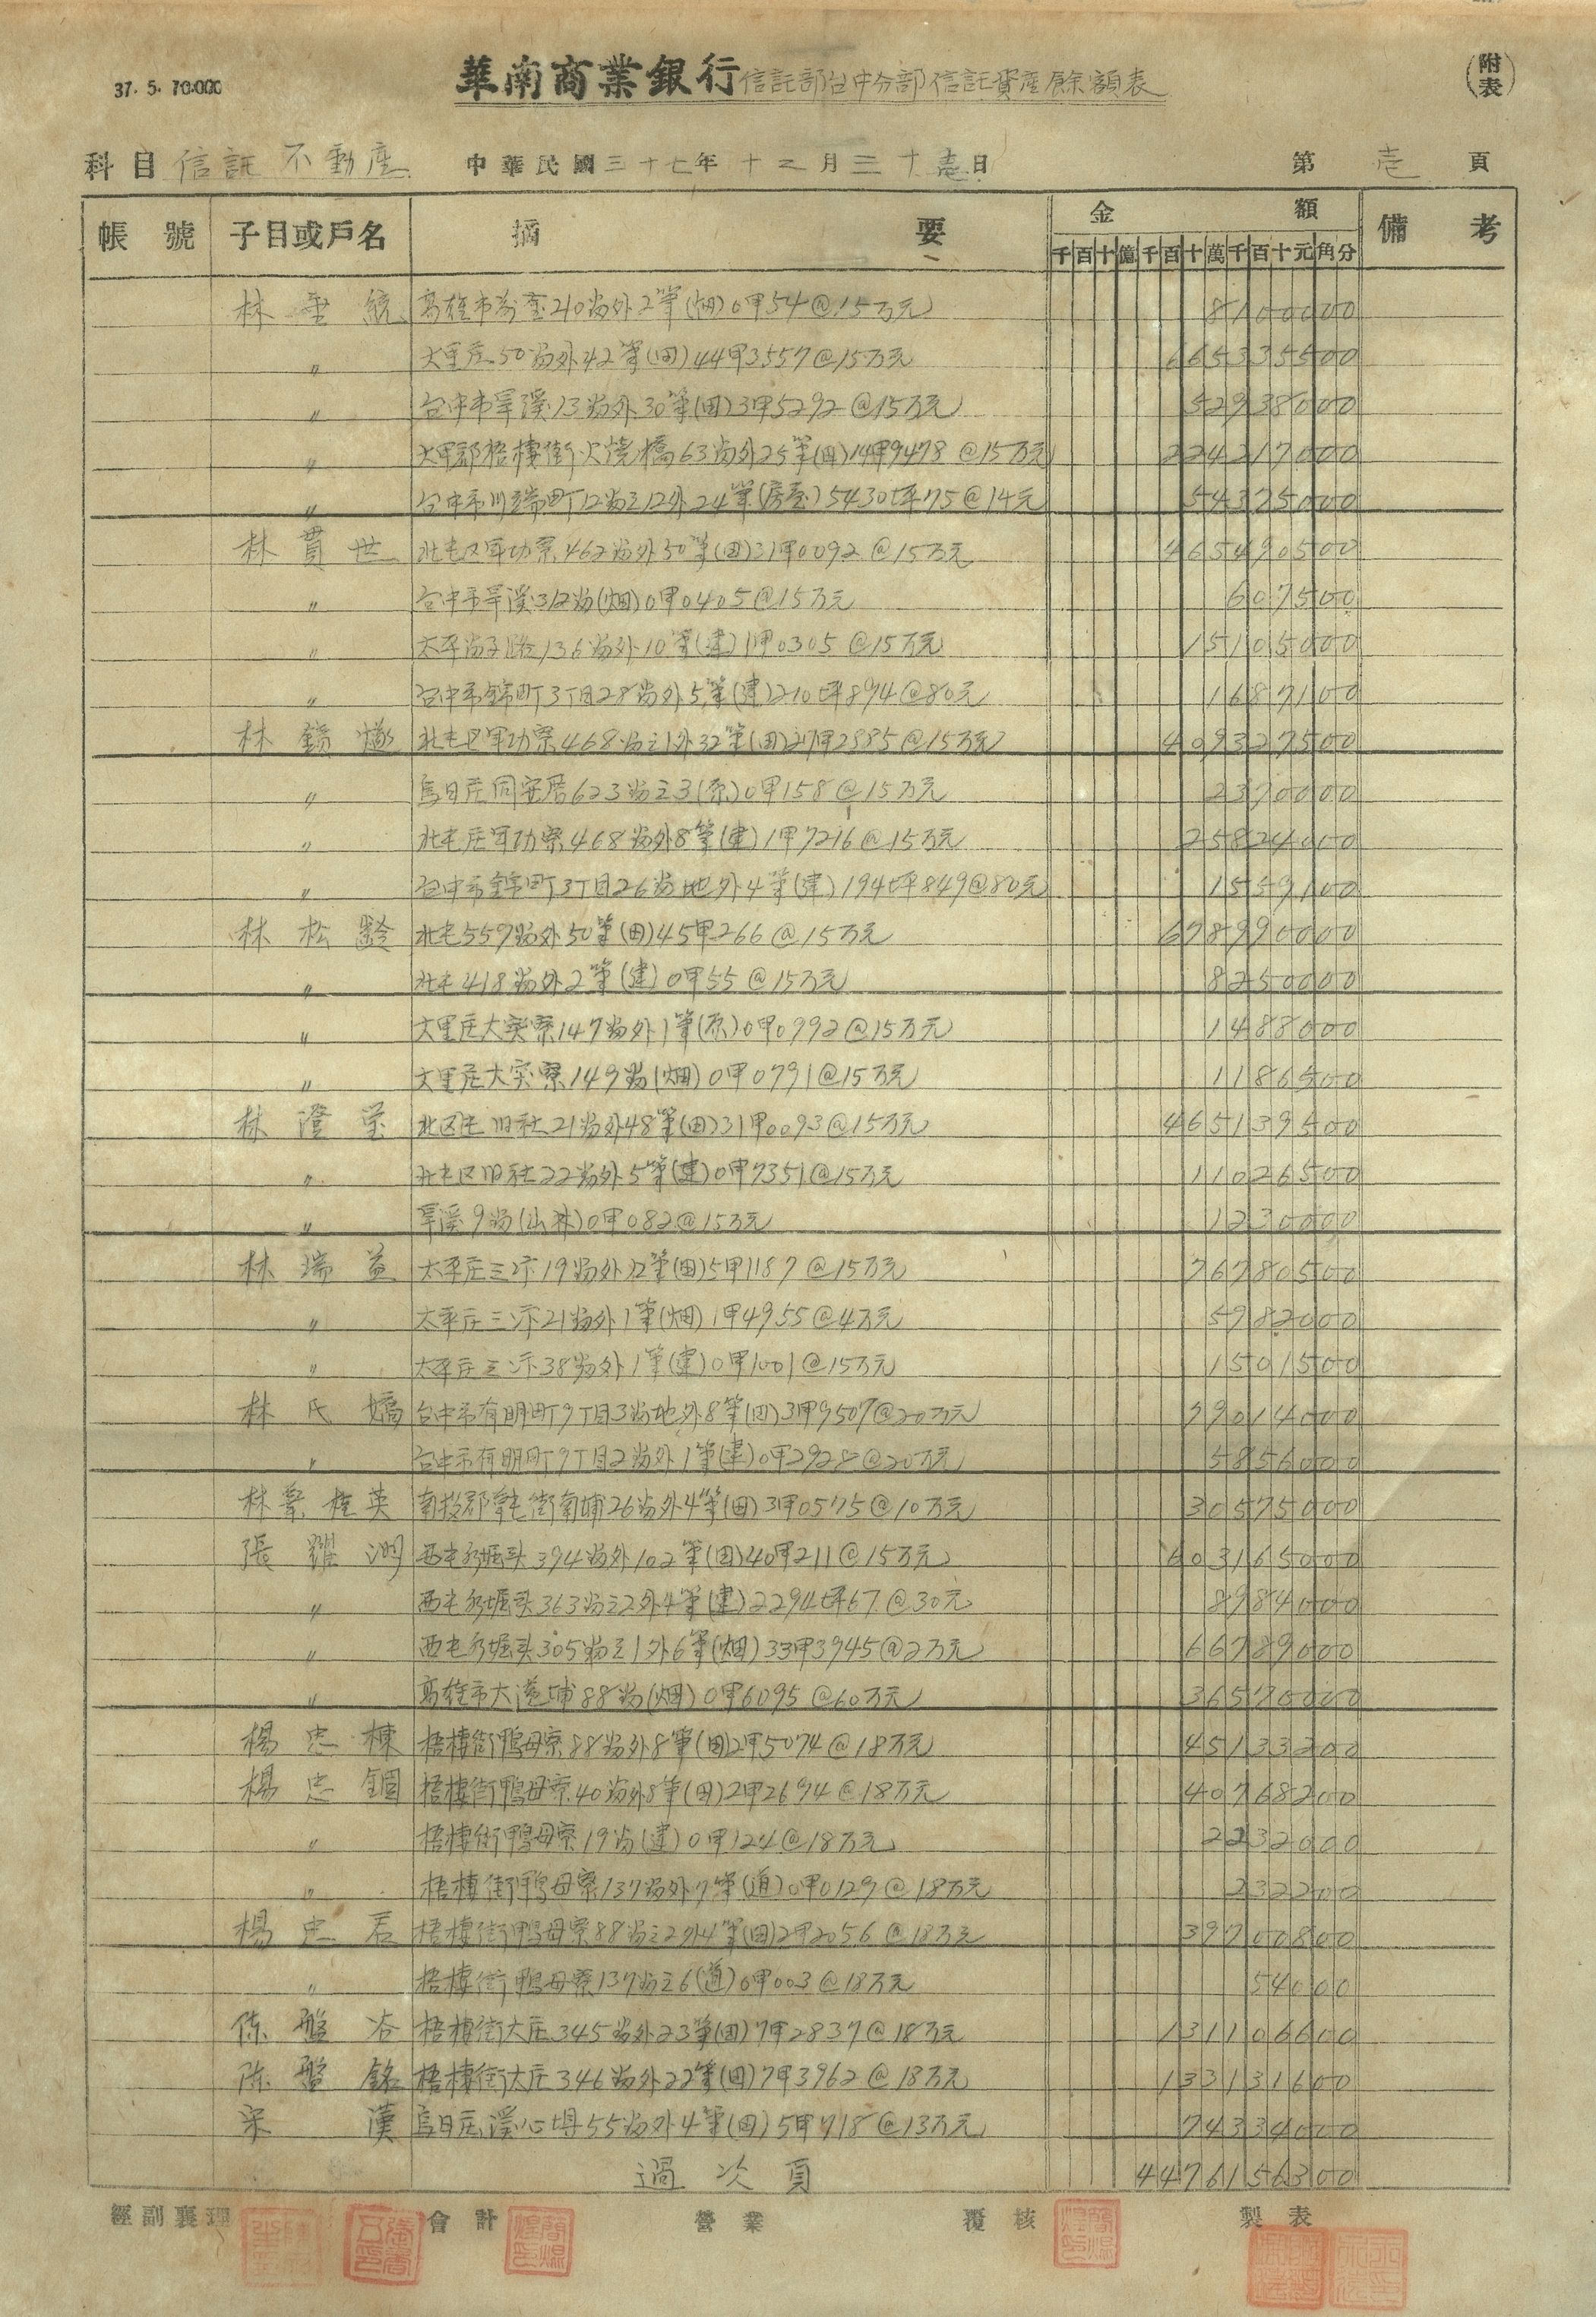 37. 5. 70.000
華南商業銀行信託部台中分部信託資產餘額表
(附表)
科目 信託不動產 中華民國三十七年十二月三十壱日 第 壱 頁
帳號 子目或戶名 摘要 金額 備考
千百十億千百十萬千百十元角分
林垂統 高雄市 210 外2筆(畑)0甲54@15万元 8100000
〃 大里庄50 外42筆(田)44甲3557@15万元 665335500
〃 台中市旱溪13 外30筆(田)3甲5292@15万元 52938000
〃 大甲郡梧棲街火燒橋63 外25筆(田)14甲9478@15万元 224217000
〃 台中市川端町12 之12外24筆(房屋)5430坪75@14元 54375000
林貫世 北屯区軍功寮462 外30筆(田)31甲0092@15万元 465490500
〃 台中市旱溪312 (畑)0甲0405@15万元 607500
〃 太平 136 外10筆(建)1甲0305@15万元 15105000
〃 台中市錦町3丁目28 外5筆(建)210坪894@80元 1687100
林鏡 北屯区軍功寮468 之1外32筆(田)27甲2885@15万元 409327500
〃 烏日庄同安厝623 之3(原)0甲158@15万元 2370000
〃 北屯庄軍功寮468 外8筆(建)1甲7216@15万元 25824000
〃 台中市錦町3丁目26 地外4筆(建)194坪849@80元 1559100
林松齡 北屯559 外50筆(田)45甲266@15万元 678990000
〃 北屯418 外2筆(建)0甲55@15万元 8250000
〃 大里庄大突寮147 外1筆(原)0甲0992@15万元 1488000
〃 大里庄大突寮149 (畑)0甲0791@15万元 1186500
林澄 北区屯旧社21 外48筆(田)31甲0093@15万元 465139500
〃 北屯区旧社22 外5筆(建)0甲7351@15万元 11026500
〃 旱溪9 (山林)0甲082@15万元 1230000
林瑞益 太平庄三汴19 外12筆(田)5甲1187@15万元 76780500
〃 太平庄三汴21 外1筆(畑)1甲4955@4万元 5982000
〃 太平庄三汴38 外1筆(建)0甲1001@15万元 1501500
林氏嬌 台中市有明町9丁目3 地外8筆(田)3甲9507@20万元 79014000
〃 台中市有明町9丁目2 外1筆(建)0甲2928@20万元 5856000
林 桂英 南投郡草屯街南埔26 外4筆(田)3甲0575@10万元 30575000
張 西屯水堀头394 外102筆(田)40甲211@15万元 603165000
〃 西屯水堀头363 之2外4筆(建)2294坪67@30元 8984000
〃 西屯水堀头305 之1外6筆(畑)33甲3945@2万元 66789000
〃 高雄市大港埔88 (畑)0甲6095@60万元 36570000
楊忠棟 梧棲街鴨母寮88 外8筆(田)2甲5074@18万元 45133200
楊忠錮 梧棲街鴨母寮40 外8筆(田)2甲2694@18万元 40768200
〃 梧棲街鴨母寮19 (建)0甲124@18万元 2232000
〃 梧棲街鴨母寮137 外7筆(道)0甲0129@18万元 232200
楊忠 梧棲街鴨母寮88 之2外4筆(田)2甲2056@18万元 39700800
〃 梧棲街鴨母寮137 之6(道)0甲003@18万元 54000
陈盤谷 梧棲街大庄345 外23筆(田)7甲2837@18万元 131106600
陈盤銘 梧棲街大庄346 外22筆(田)7甲3962@18万元 133131600
宋漢 烏日庄溪心埧55 外4筆(田)5甲718@13万元 74334000
過次頁 4476156300
經副襄理 會計 營業 覆核 製表